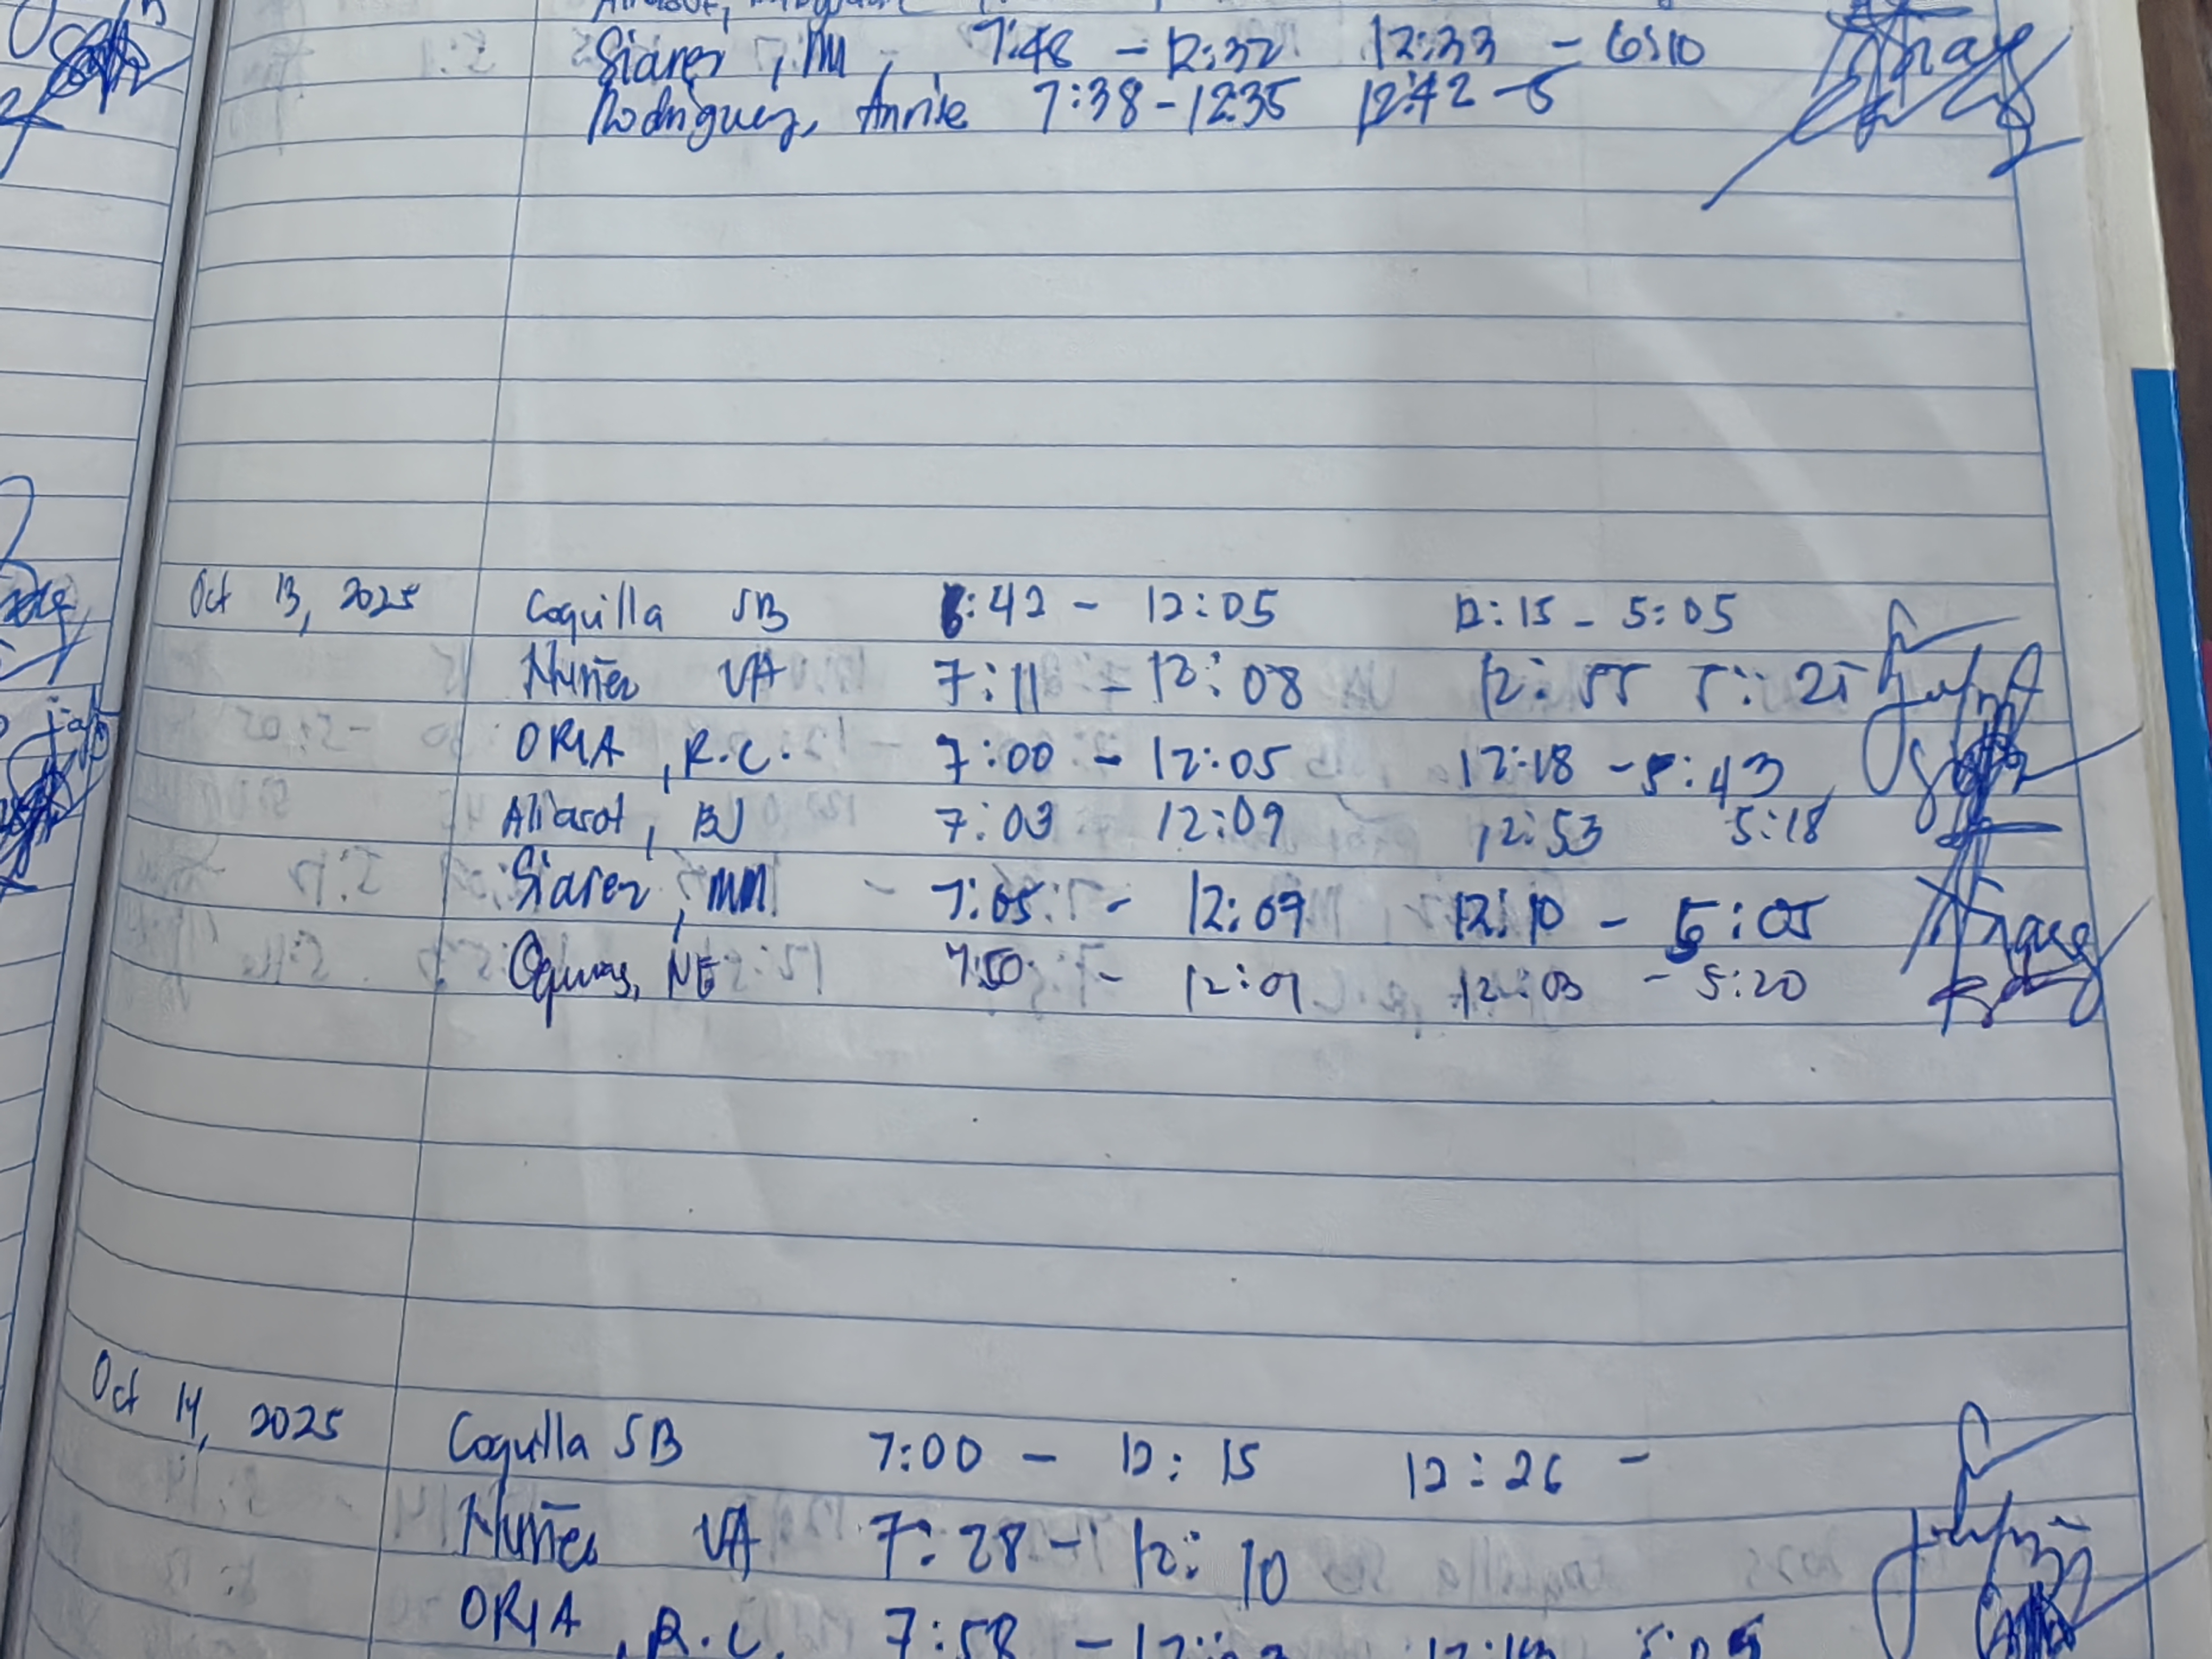 Siarez, MM, 7:48 - 12:32 12:33 - 6:10
Rodriguez, Annie 7:38 - 12:35 12:42 - 5
Oct 13, 2025 Coquilla SB 6:42 - 12:05 12:15 - 5:05
Nuñez VA 7:11 - 12:08 12:55 5:25
ORIA, R.C. 7:00 - 12:05 12:18 - 5:43
Aliasot, BJ 7:03 12:09 12:53 5:18
Siarez, MM - 7:05 - 12:09 12:10 - 5:05
NE 7:50 - 12:01 12:03 - 5:20
Oct 14, 2025 Coquilla SB 7:00 - 12:15 12:26 -
Nuñez VA 7:28 - 12:10
ORIA, R.C. 7:58 -